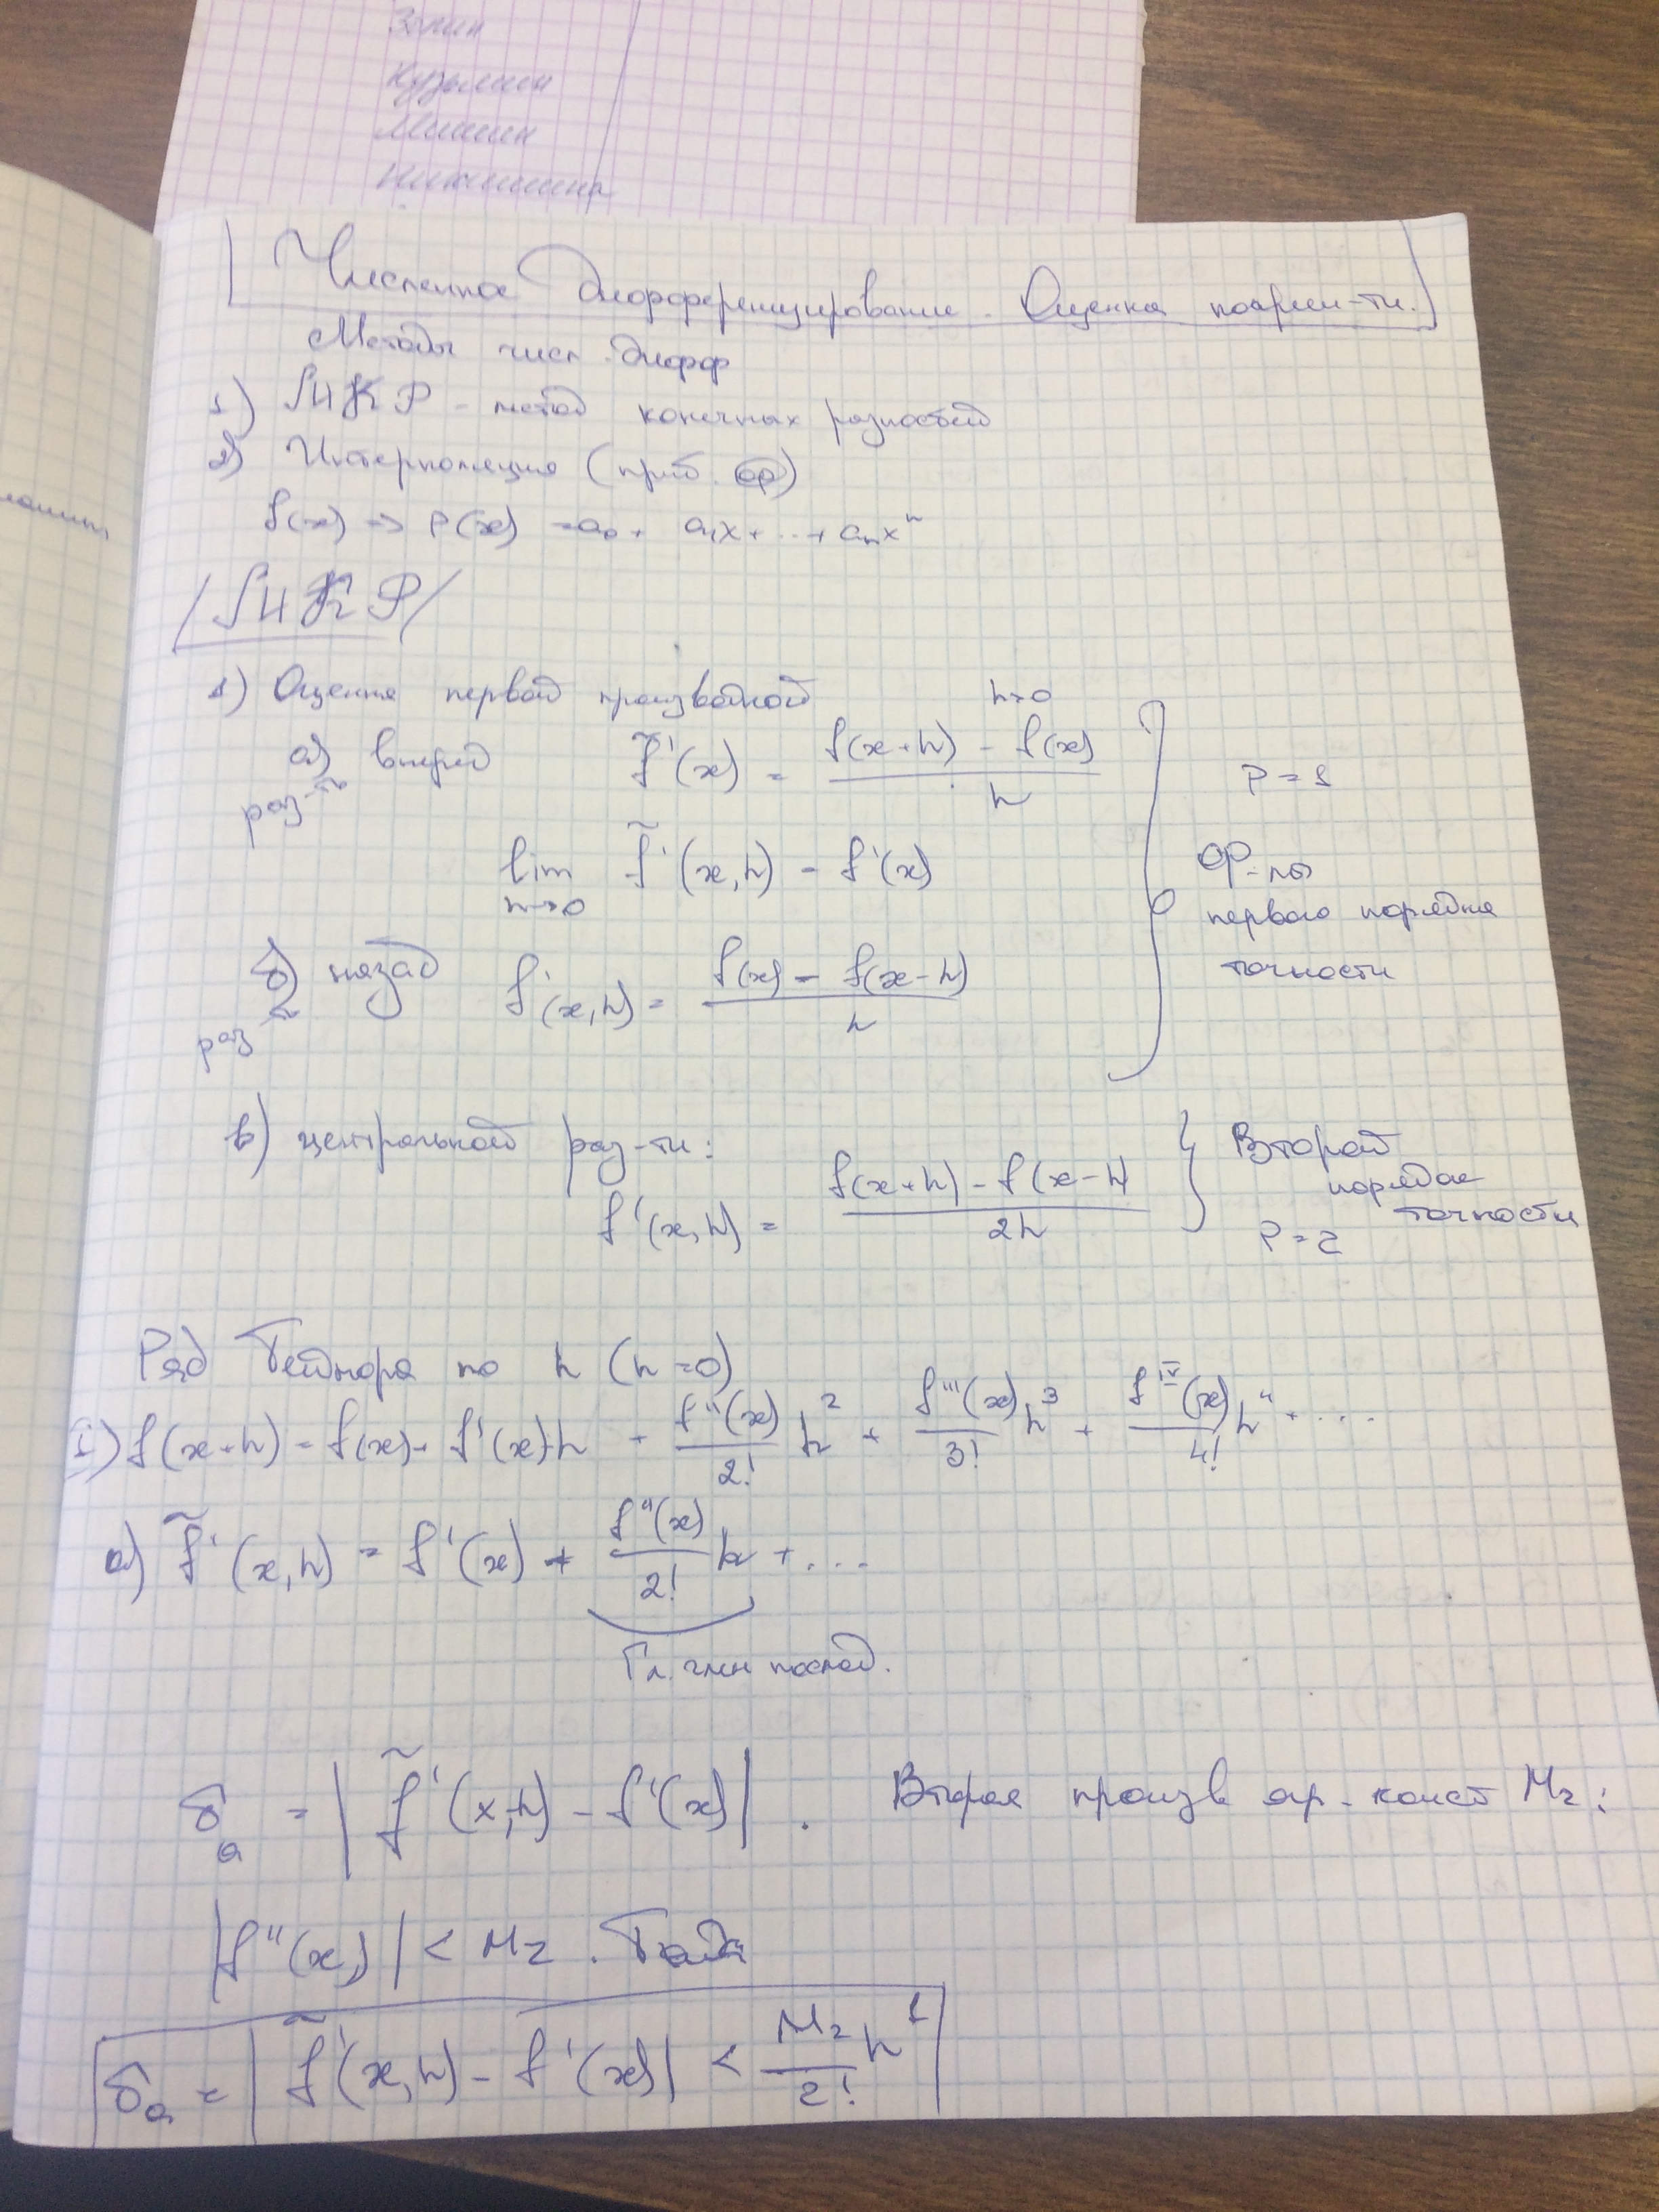 Зотин
Кузьмин
Мишин
Никишина
Численное дифференцирование. Оценка погреш-ти.
Методы числ. дифф
1) МКР - метод конечных разностей
2) Интерполяция (приб. ф)
f(x) => P(x) = a₀ + a₁x + ... + aₙxⁿ
МКР
1) Оценка первой производной
h>0
а) вперёд f̃'(x) = (f(x+h) - f(x))/h
раз-ть
P = 1
lim f̃'(x,h) = f'(x)
h→0
ф-лы
первого порядка
точности
б) назад f'(x,h) = (f(x) - f(x-h))/h
раз-ть
в) центральной раз-ти:
f'(x,h) = (f(x+h) - f(x-h))/2h
Второй
порядок
точности
P = 2
Ряд Тейлора по h (h=0)
I) f(x+h) = f(x) + f'(x)h + f''(x)/2! h² + f'''(x)/3! h³ + f^IV(x)/4! h⁴ + ....
а) f̃'(x,h) = f'(x) + f''(x)/2! h + ....
Гл. член
δₐ = | f̃'(x,h) - f'(x) | . Вторая произв огр. конст M₂:
|f''(x)| < M₂ . Тогда
δₐ = | f̃'(x,h) - f'(x) | < M₂/2! h¹